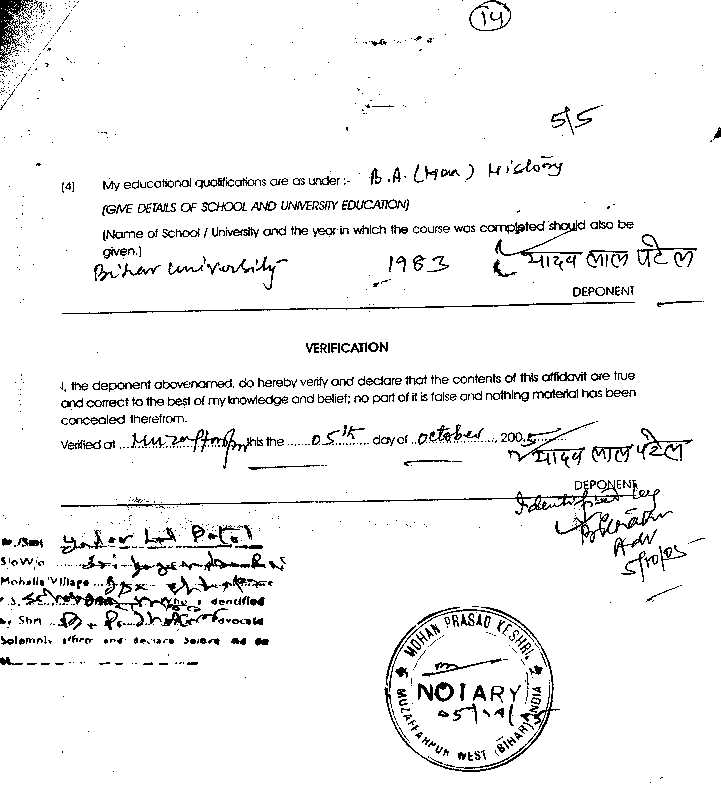 14
5/5
(4) My educational qualifications are as under :- B.A. (Hon) History
(GIVE DETAILS OF SCHOOL AND UNIVERSITY EDUCATION)
(Name of School / University and the year in which the course was completed should also be
given.)
Bihar University 1983 यादव लाल पटेल
DEPONENT
VERIFICATION
I, the deponent abovenamed, do hereby verify and declare that the contents of this affidavit are true
and correct to the best of my knowledge and belief; no part of it is false and nothing material has been
concealed therefrom.
Verified at this the 05th day of October 2005
यादव लाल पटेल
DEPONENT
Identified by
Adv
5/10/05
Yadav Lal Patel
S/o W/o
Mohalla Village
identified
by Shri Advocate
Solemnly affirm and declare before me on
MOHAN PRASAD KESHRI
NOTARY
MUZAFFARPUR WEST (BIHAR) INDIA